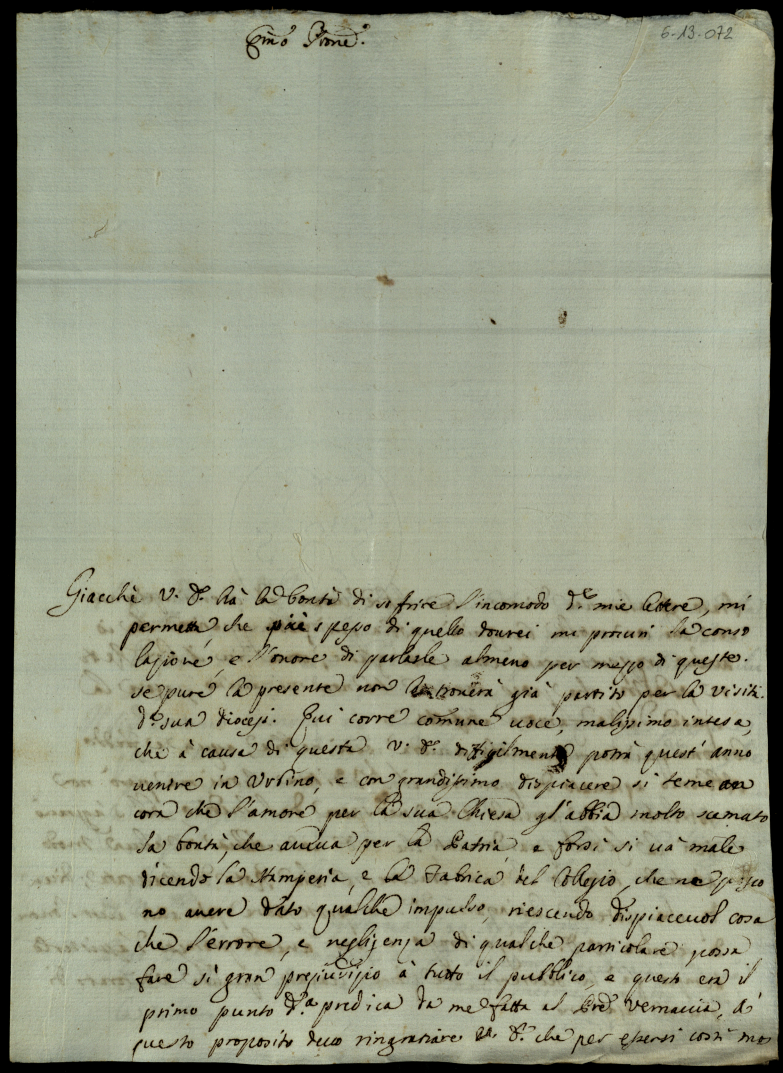 6-13-072
Em̃o Prone.
Giacchè V. Em̃a hà la bontà di soffrire l'incomodo d.e mie lettere, mi
permetta, che più spesso di quello dovrei mi procuri la conso
lazione, e l'onore di parlarle almeno per mezzo di queste.
se pure la presente non la troverà già partito per la visita
d.a sua diocesi. Qui corre comune voce, malissimo intesa,
che à causa di questa V. difficilmente potrà quest' anno
venire in Urbino, e con grandissimo dispiacere si teme an
cora che l'amore per la sua Chiesa gl'abbia molto scemato
la bontà, che aveva per la Patria, e forsi si và male
dicendo la Stamperia, e la Fabrica del Collegio, che ne posso
no avere dato qualche impulso, riescendo dispiacevol cosa
che l'errore, e negligenza di qualche particolare possa
fare si gran pregiudizio à tutto il pubblico, e questo era il
primo punto d.a predica da me fatta al Pre Vernaccia, à
questo proposito devo ringraziare che per essersi così mos